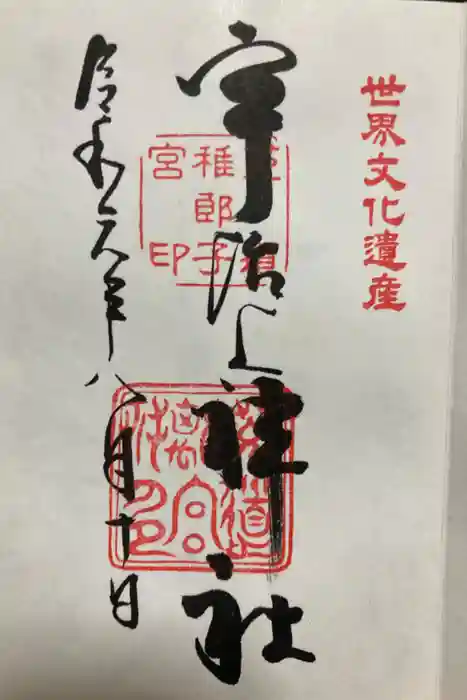 世界文化遺産
宇治上神社
稚郎子
宮印
令和元年八月十日